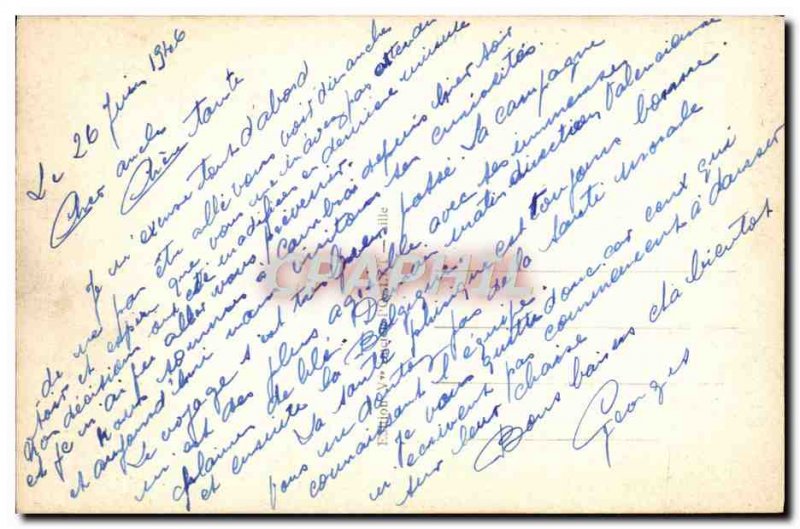 Le 26 Juin 1946
Cher oncle
Chère tante
Je m'excuse tout d'abord
de ne pas être allé vous voir dimanche
soir et espère que vous ne m'avez pas attendu
décisions ont été modifiées en dernière minute
et je n'ai pu aller vous prévenir.
Nous sommes à Cambrai depuis hier soir
et aujourd'hui nous visitons ses curiosités.
Le voyage s'est très bien passé. La campagne
est des plus agréable avec ses immenses
plaines de blé. Demain matin direction Valencienne
et ensuite la Belgique.
La santé physique est toujours bonne.
vous ne doutez pas de la santé morale
connaissant l'équipe.
Je vous quitte donc car ceux qui
n'écrivent pas commencent à danser
sur leur chaise
Bons baisers et à bientot
Georges
CPAPHIL
Edition